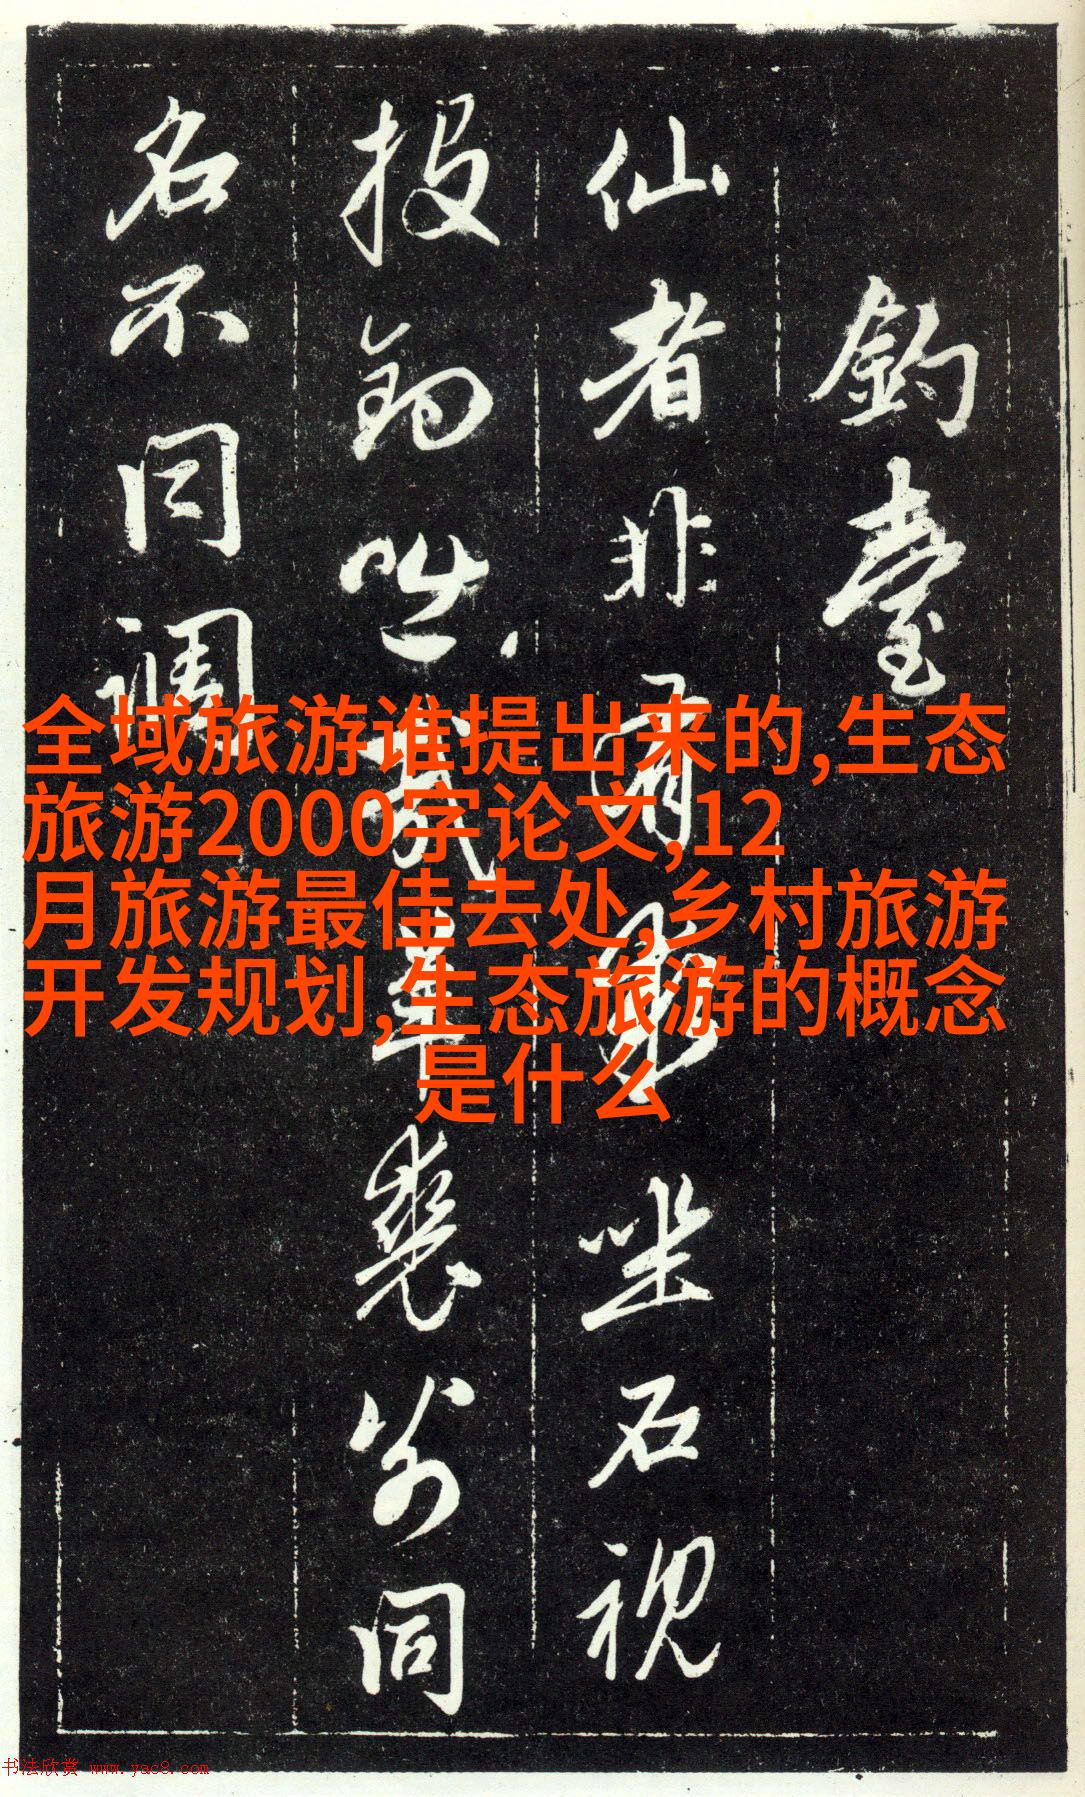 釣臺
仙者非有求坐石視
投釣咄哉羊裘爲同
名不同调
全域旅游谁提出来的,生态
旅游2000字论文,12
月旅游最佳去处,乡村旅游
开发规划,生态旅游的概念
是什么
书法欣赏 www.yac8.com